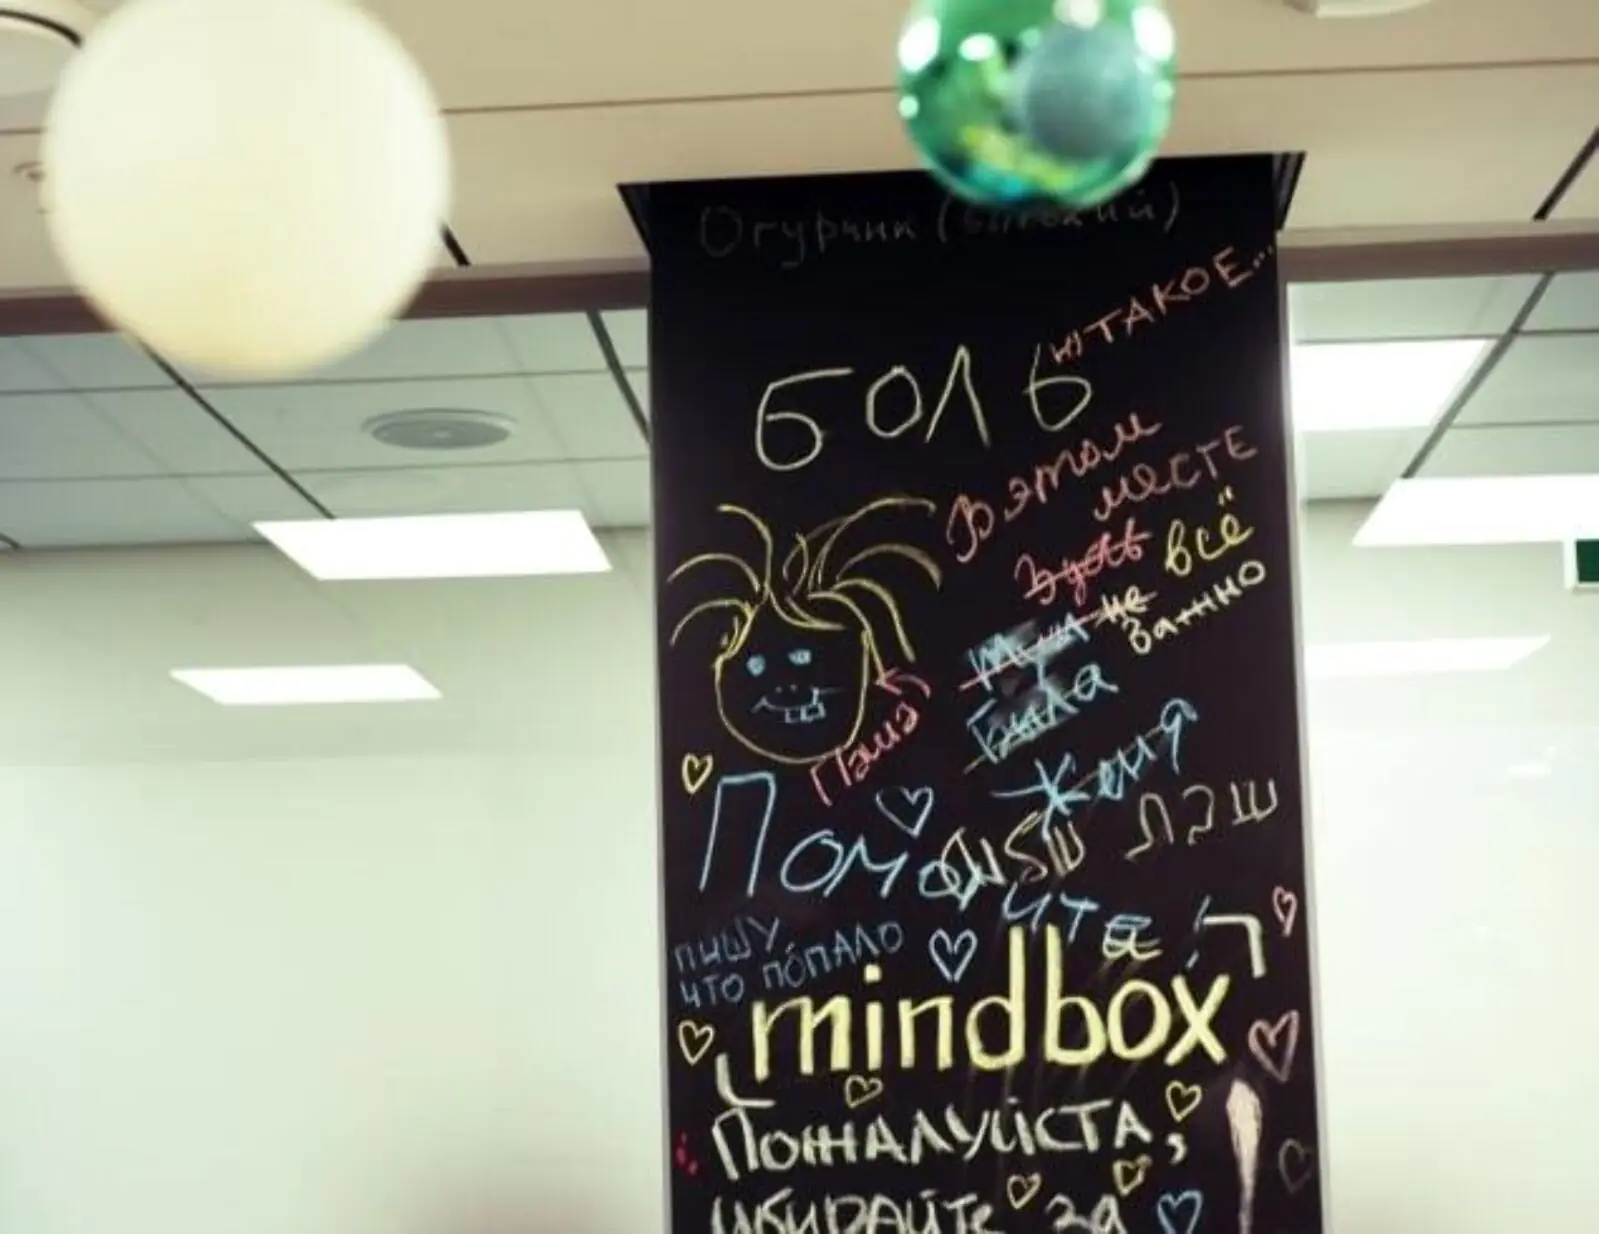 Огурчик
Ж) ТАКОЕ...
БОЛЬ
В этом
месте
здесь всё
не
важно
была
Женя
Пэшэ
Помогите
ЛЭШ
пишу,
что попало
mindbox
Пожалуйста,
убирайте за